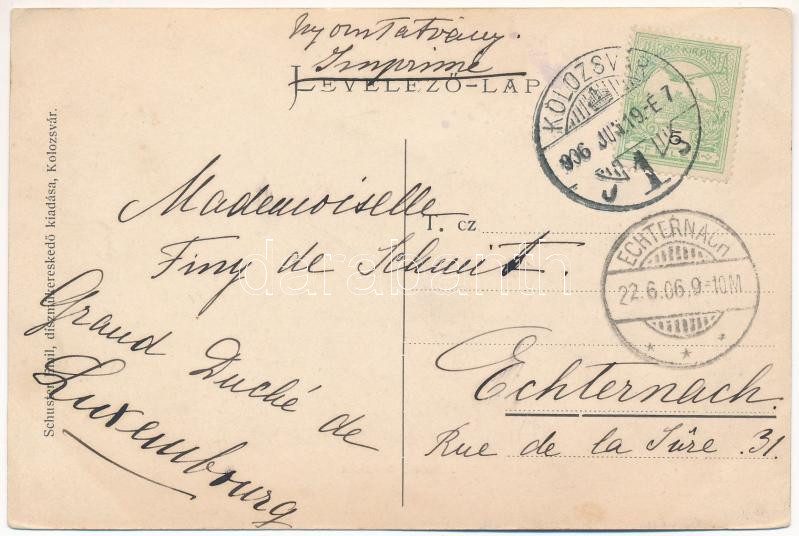 Nyomtatvány.
Imprimé
LEVELEZŐ-LAP
KOLOZSVÁR
906 JUN 19.-É.7
5
ECHTERNACH
22.6.06.9-10M
Mademoiselle
T. cz
Finy de Schmit.
Grand Duché de
Luxembourg
Echternach.
Rue de la Sûre 31.
Schuster Emil, díszműkereskedő kiadása, Kolozsvár.
darabanth